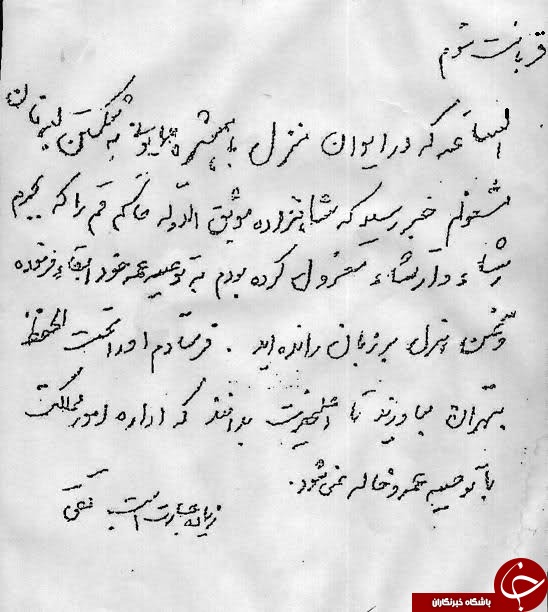 قربانت شوم
الساعه که در ایوان منزل با همشیره همایونی به شکستن لبه نان
مشغولم خبر رسید که شاهزاده موثق الدوله حاکم قم را که بجرم
رشاء و ارتشاء معزول کرده بودم به توصیه عمه خود ابقاء فرموده
و سخن هزل بر زبان رانده اید . فرستادم او را تحت الحفظ
بتهران بیاورند تا اعلیحضرت بدانند که اداره امور مملکت
با توصیه عمه و خاله نمی شود .
زیاده جسارت است تقی
باشگاه خبرنگاران